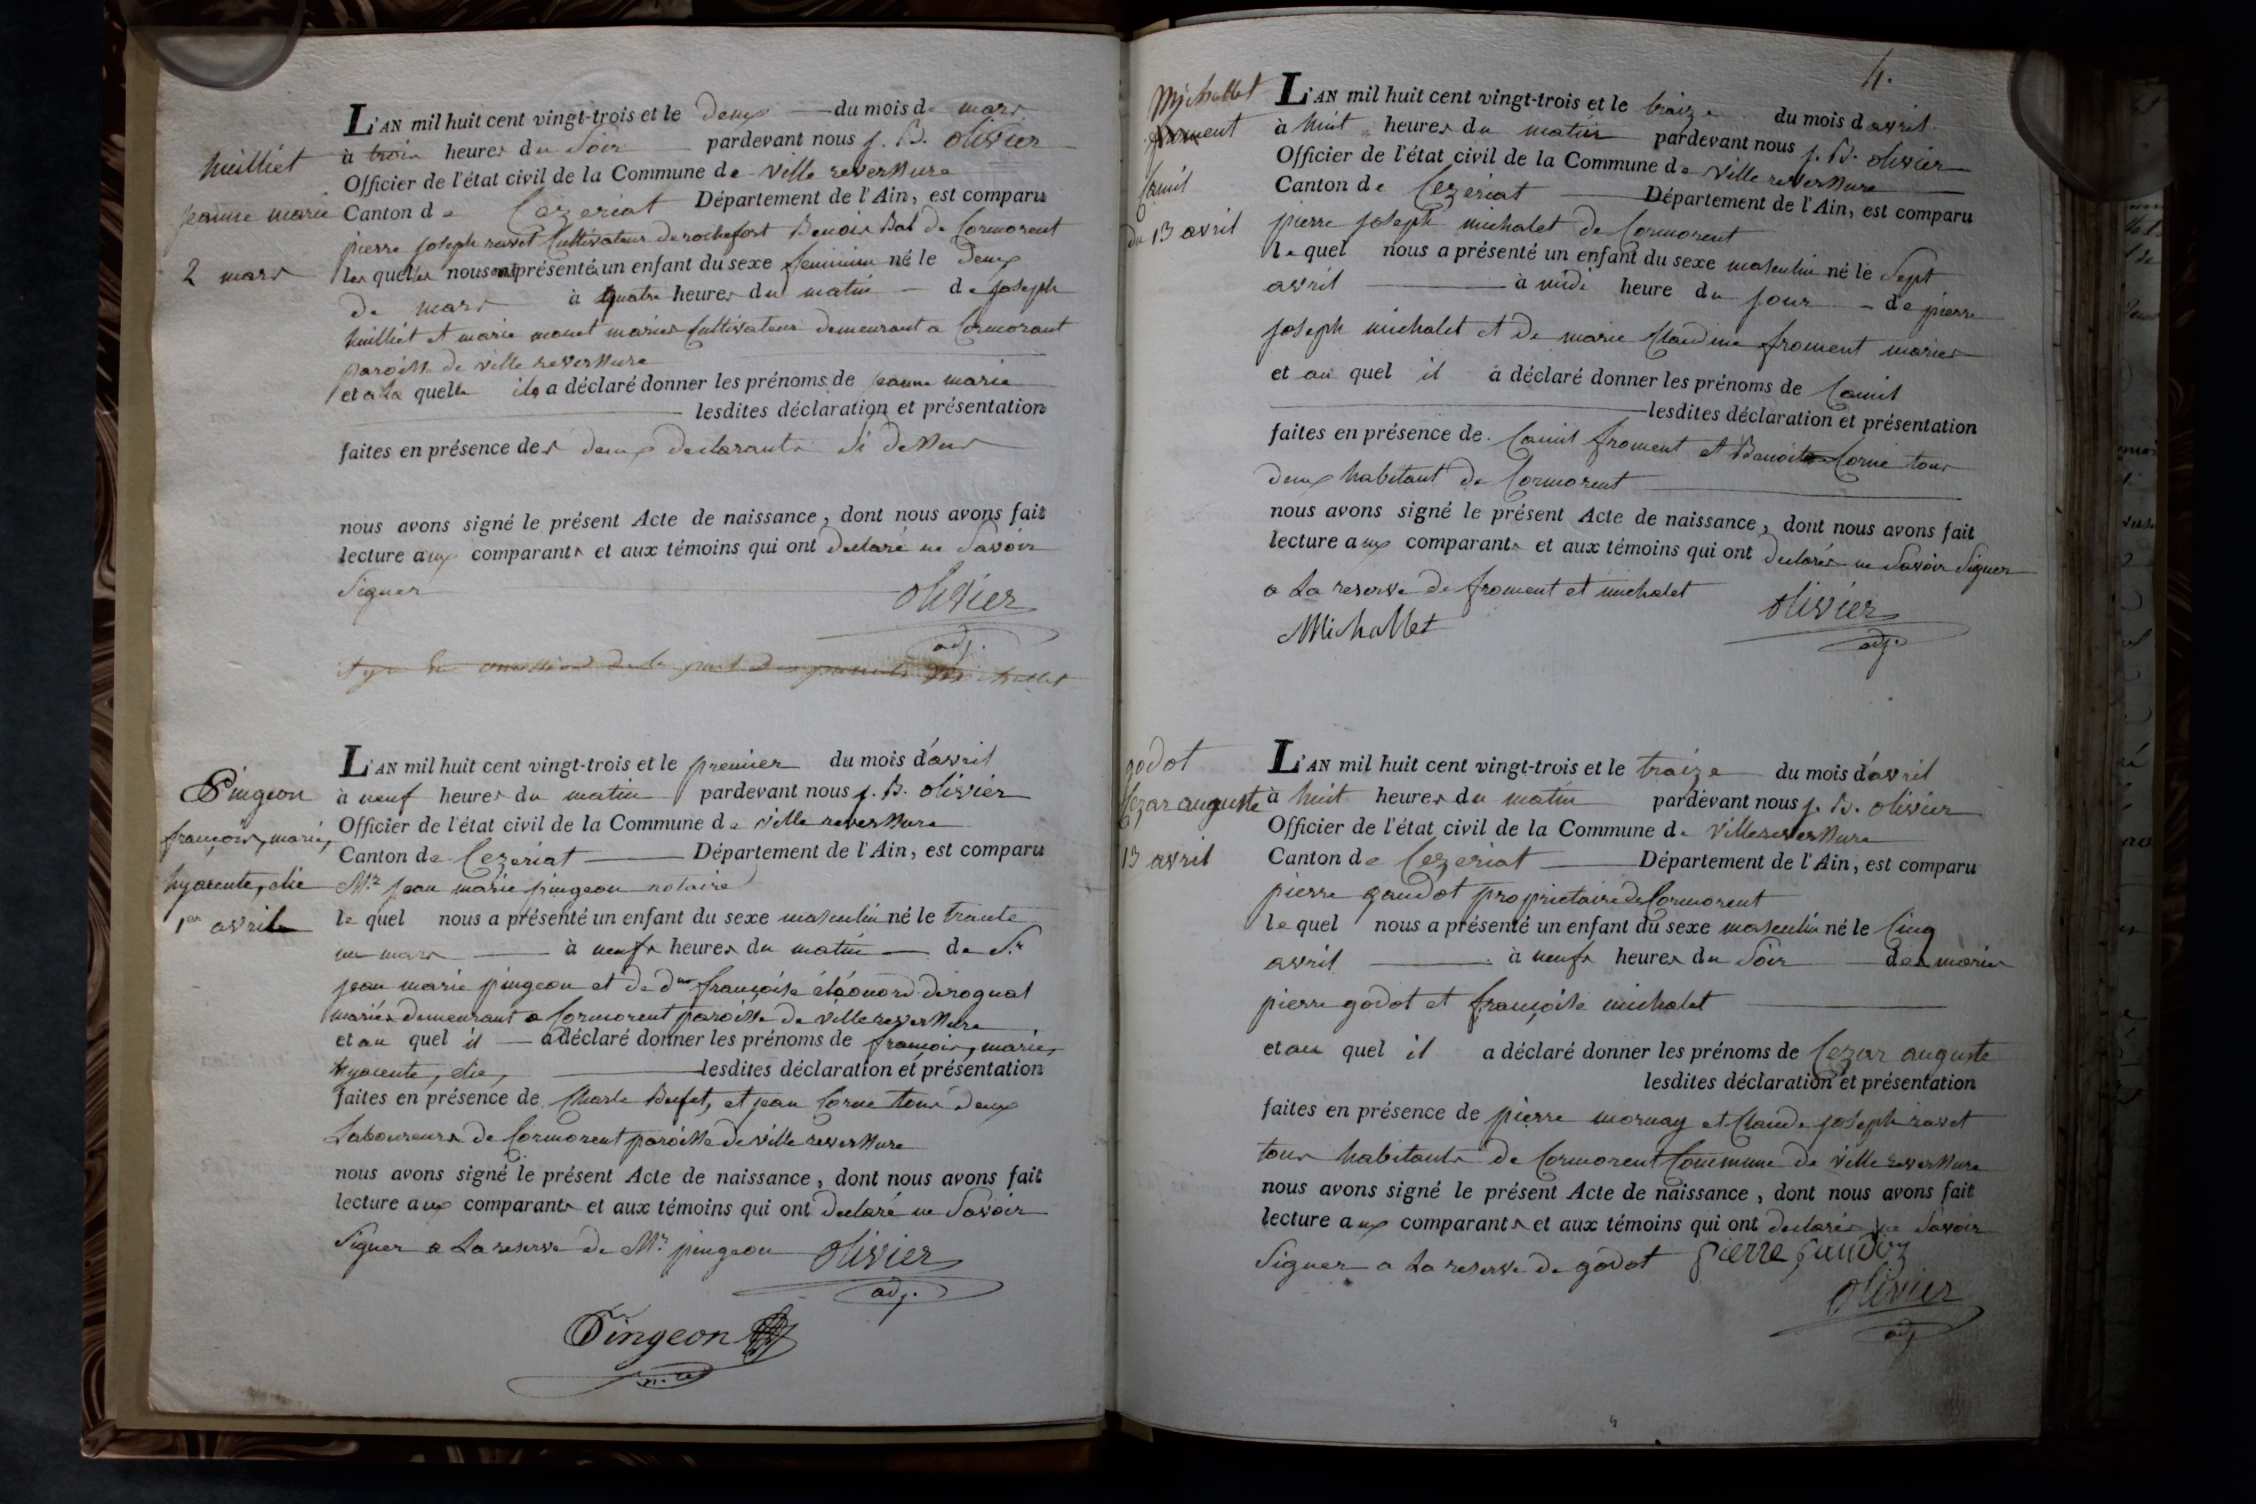 huilliet
jeanne marie
2 mars
L'AN mil huit cent vingt-trois et le deux du mois de mars
à trois heures du soir pardevant nous j. B. olivier
Officier de l'état civil de la Commune de ville reverssure
Canton de Cezeriat Département de l'Ain, est comparu
pierre joseph ravet Cultivateur de rochefort Benois Bal de Cormorent
les quels nous ont présenté un enfant du sexe feminin né le deux
de mars à quatre heures du matin de joseph
huilliet et marie monet mariés Cultivateur demeurant a Cormorant
paroisse de ville reverssure
et a la quelle ils a déclaré donner les prénoms de jeanne marie
lesdites déclaration et présentation
faites en présence des deux declarants si dessus
nous avons signé le présent Acte de naissance, dont nous avons fait
lecture aux comparants et aux témoins qui ont declaré ne savoir
signer
olivier
adj.
omission de la part des parents
Pingeon
françois, marie,
hyacente, elie
1er avril
L'AN mil huit cent vingt-trois et le premier du mois d'avril
à neuf heures du matin pardevant nous j. B. olivier
Officier de l'état civil de la Commune de ville reverssure
Canton de Cezeriat Département de l'Ain, est comparu
Mr jean marie pingeon notaire
le quel nous a présenté un enfant du sexe masculin né le trante
un mars à neufs heures du matin de Sr
jean marie pingeon et de dme françoise éléonord derognat
mariés demeurant a Cormorent paroisse de ville reverssure
et au quel il a déclaré donner les prénoms de francois, marie,
hyacente, elie, lesdites déclaration et présentation
faites en présence de Charle Bufet, et jean Corne tous deux
Laboureurs de Cormorent paroisse de ville reverssure
nous avons signé le présent Acte de naissance, dont nous avons fait
lecture aux comparants et aux témoins qui ont declaré ne savoir
signer a La reserve de Mr pingeon olivier
adj.
Pingeon
n.re
4.
Michallet
froment
Camil
du 13 avril
L'AN mil huit cent vingt-trois et le traize du mois d'avril
à huit heures du matin pardevant nous j. B. olivier
Officier de l'état civil de la Commune de ville reverssure
Canton de Cezeriat Département de l'Ain, est comparu
pierre joseph michalet de Cormorent
le quel nous a présenté un enfant du sexe masculin né le sept
avril à midi heure du jour de pierre
joseph michalet et de marie Claudine froment mariés
et au quel il a déclaré donner les prénoms de Camil
lesdites déclaration et présentation
faites en présence de Camil froment et Benoit Corne tous
deux habitant de Cormorent
nous avons signé le présent Acte de naissance, dont nous avons fait
lecture aux comparants et aux témoins qui ont declarés ne savoir signer
a La reserve de froment et michalet
Michallet olivier
adj.
godot
Cezar auguste
13 avril
L'AN mil huit cent vingt-trois et le traize du mois d'avril
à huit heures du matin pardevant nous j. B. olivier
Officier de l'état civil de la Commune de Ville reverssure
Canton de Cezeriat Département de l'Ain, est comparu
pierre gaudot propriétaire de Cormorent
le quel nous a présenté un enfant du sexe masculin né le Cinq
avril à neufs heures du soir des mariés
pierre godot et françoise michalet
et au quel il a déclaré donner les prénoms de Cezar auguste
lesdites déclaration et présentation
faites en présence de pierre mornay et Claude joseph ravet
tous habitants de Cormorent Commune de ville reverssure
nous avons signé le présent Acte de naissance, dont nous avons fait
lecture aux comparants et aux témoins qui ont declarés ne savoir
signer a La reserve de godot pierre
olivier
adj